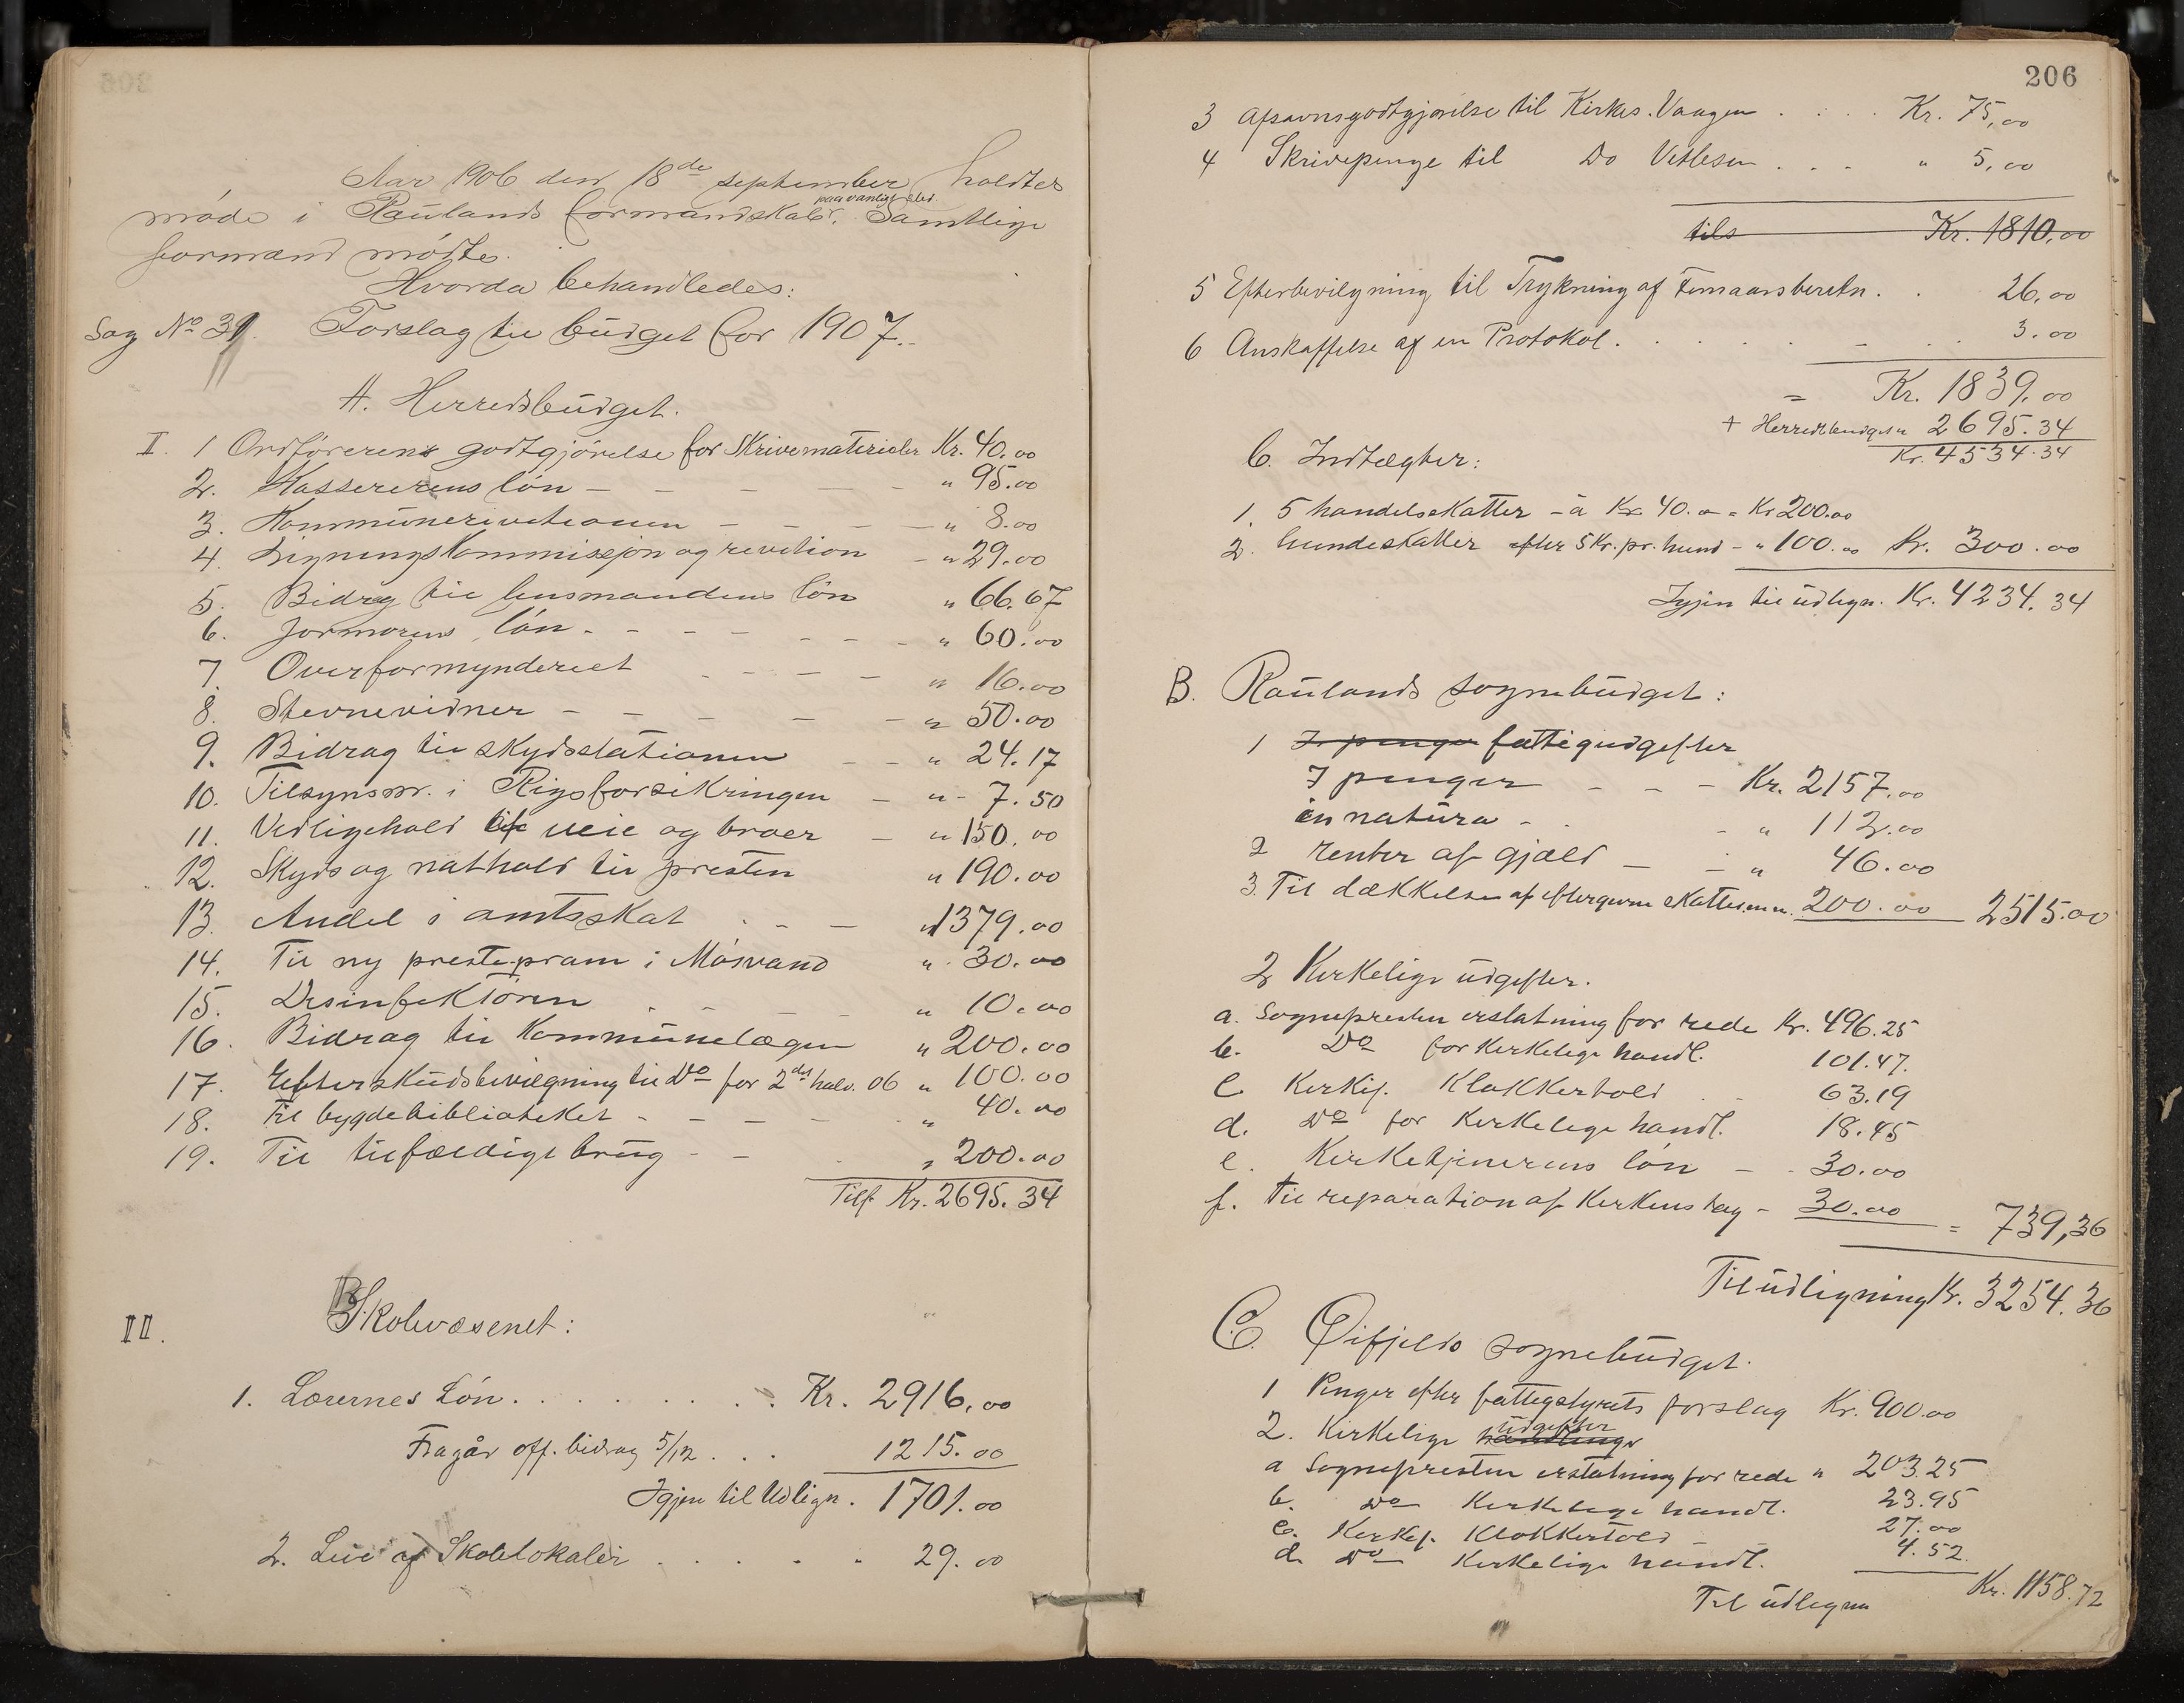 Aar 1906 den 18de september holdtes
møde i Raulands formandskab. paa vanligt sted. Samtlige
formænd mødte.
Hvorda behandledes:
Sag No 31. Forslag til budget for 1907.
A. Herredsbudget.
I. 1 Ordførerens godtgjørelse for Skrivematerialer Kr. 40.00
2. Kassererens løn — " 95.00
3. Kommunerevisionen — " 8.00
4. Ligningskommissjon og revition — " 29.00
5. Bidrag til lensmandens løn " 66.67
6. Jormorens løn — " 60.00
7. Overformynderiet — " 16.00
8. Stevnevidner — " 50.00
9. Bidrag til skydsstationen — " 24.17
10. Tilsynsm. i Rigsforsikringen — " 7.50
11. Vedligehold af veie og broer — " 150.00
12. Skyds og nathold til presten " 190.00
13. Andel i amtsskat — " 1379.00
14. Til ny prestepram i Møsvand " 30.00
15. Desinfektøren — " 10.00
16. Bidrag til Kommunelægen " 200.00
17. Efterskudsbevilgning til Do for 2det halv. 06 " 100.00
18. Til bygdebiblioteket — " 40.00
19. Til tilfældige brug — " 200.00
Tils. Kr. 2695.34
II. B Skolevæsenet:
1. Lærernes Løn. . . . Kr. 2916,00
Fragår off. bidrag 5/12 . . . 1215.00
Igjen til Udlign. 1701.00
2. Leie af Skolelokaler . . . . 29.00
206
3 Afsavnsgodtgjørelse til Kirkes. Vaagen . . . . Kr. 75,00
4 Skrivepenge til Do Vetlesen . . . " 5,00
tils Kr. 1810,00
5 Efterbevilgning til Trykning af Femaarsberetn. . . 26,00
6 Anskaffelse af en Protokol. . . . . 3.00
= Kr. 1839.00
+ Herredsbudget " 2695.34
Kr. 4534.34
C. Indtægter:
1. 5 handelsskatter - à Kr 40.00 = Kr 200.00
2. hundeskatter efter 5 Kr. pr. hund - " 100.00 Kr. 300.00
Igjen til udlign. Kr. 4234.34
B. Raulands sognebudget:
1 I penger fattigudgifter
I penger — Kr. 2157.00
in natura — " 112.00
2 renter af gjæld — " 46.00
3. Til dækkelse af eftergivne skatter m.m. 200.00 2515.00
2 Kirkelige udgifter.
a. Sognepresten erstatning for rede Kr. 496.25
b. Do for Kirkelige handl. 101.47.
c Kirkes. Klokkertold . . 63.19
d. Do for Kirkelige handl. 18.45
e. Kirketjenerens løn — 30.00
f. til reparation af Kirkens tag — 30.00 = 739,36
Til udligning Kr. 3254.36
C. Øifjelds sognebudget.
1 Penger efter fattigstyrets forslag Kr. 900.00
2. Kirkelige handlinger udgifter
a Sognepresten erstatning for rede " 203.25
b. Do Kirkelige handl. 23.95
c. Kirkes. Klokkertold — 27.00
d. Do Kirkelige handl. 4.52
Til udlegnn Kr. 1158.72